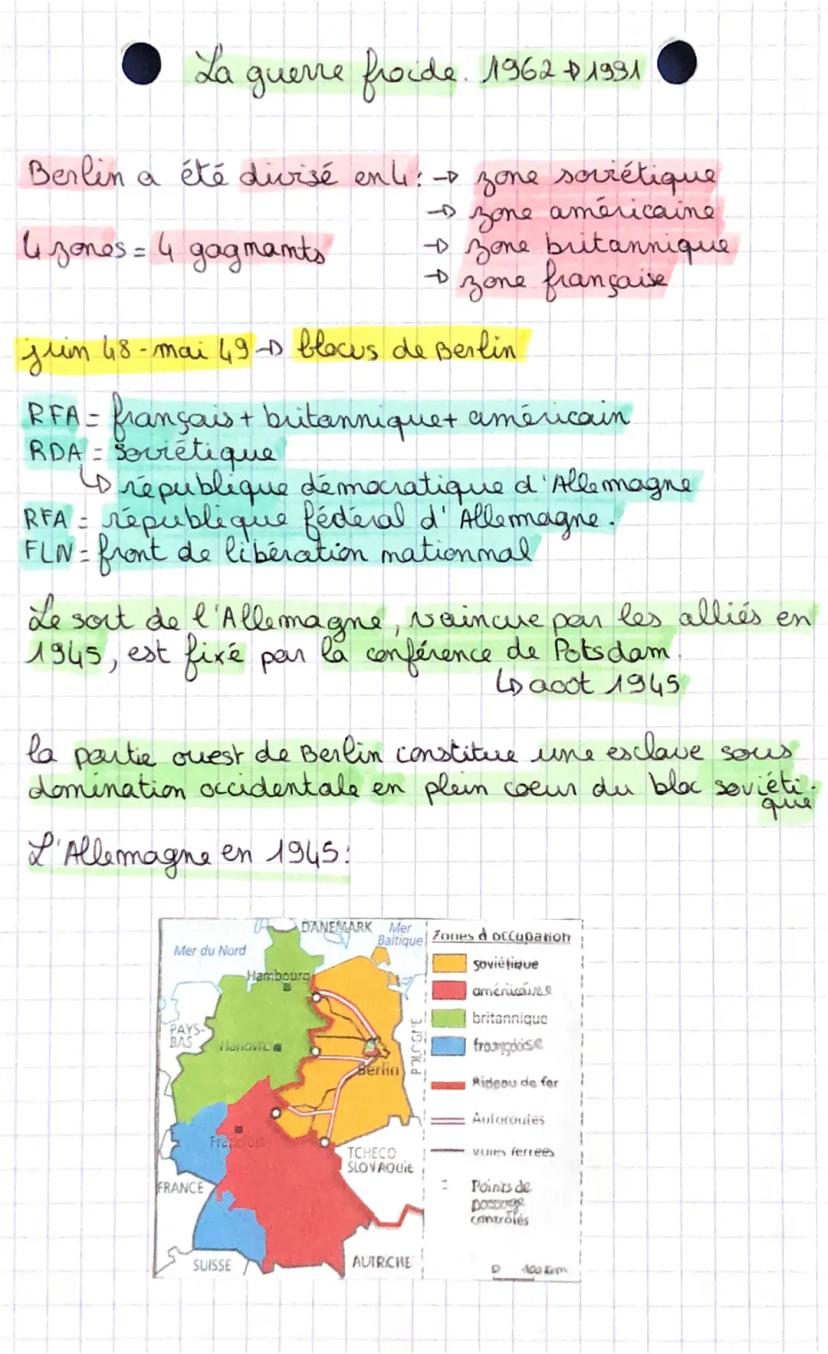 La guerre froide. 1962 → 1991
Berlin a été divisé en 4 : → zone soviétique
→ zone américaine
4 zones = 4 gagnamts → zone britannique
→ zone française
juin 48 - mai 49 → blocus de Berlin
RFA = français + britannique + américain
RDA = soviétique
↳ république démocratique d'Allemagne
RFA = république fédéral d'Allemagne.
FLN = front de libération nationnal
Le sort de l'Allemagne, vaincue par les alliés en
1945, est fixé par la conférence de Potsdam.
↳ aoot 1945
la partie ouest de Berlin constitue une esclave sous
domination occidentale en plein coeur du bloc soviéti-
que
L'Allemagne en 1945 :
DANEMARK
Mer Baltique
Mer du Nord
Hambourg
PAYS-
BAS
Hanovre
Berlin
POLOGNE
Francfort
TCHECO
SLOVAQUIE
FRANCE
SUISSE
AUTRICHE
Zones d'occupation
soviétique
américaine
britannique
française
Rideau de fer
Autoroutes
voies ferrées
Points de
passage
contrôlés
0 100 km